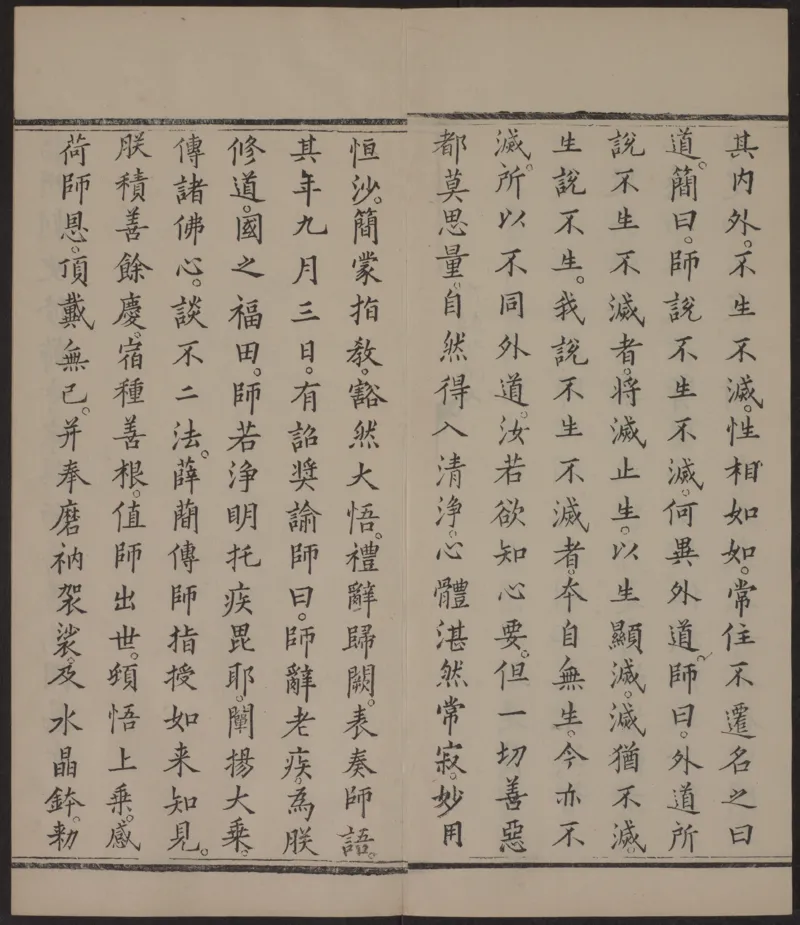 其内外。不生不滅。性相如如。常住不遷名之曰
道。簡曰。師說不生不滅。何異外道。師曰。外道所
說不生不滅者。將滅止生。以生顯滅。滅猶不滅。
生說不生。我說不生不滅者。本自無生。今亦不
滅。所以不同外道。汝若欲知心要。但一切善惡
都莫思量。自然得入清淨。心體湛然常寂。妙用
恒沙。簡蒙指教。豁然大悟。禮辭歸闕。表奏師語。
其年九月三日。有詔奬諭師曰。師辭老疾。為朕
修道。國之福田。師若淨明托疾毘耶。闡揚大乗。
傳諸佛心。談不二法。薛蕳傳師指授如来知見。
朕積善餘慶。宿種善根。值師出世。頓悟上乗。感
荷師恩。頂戴無已。并奉磨衲袈裟。及水晶鉢。勅